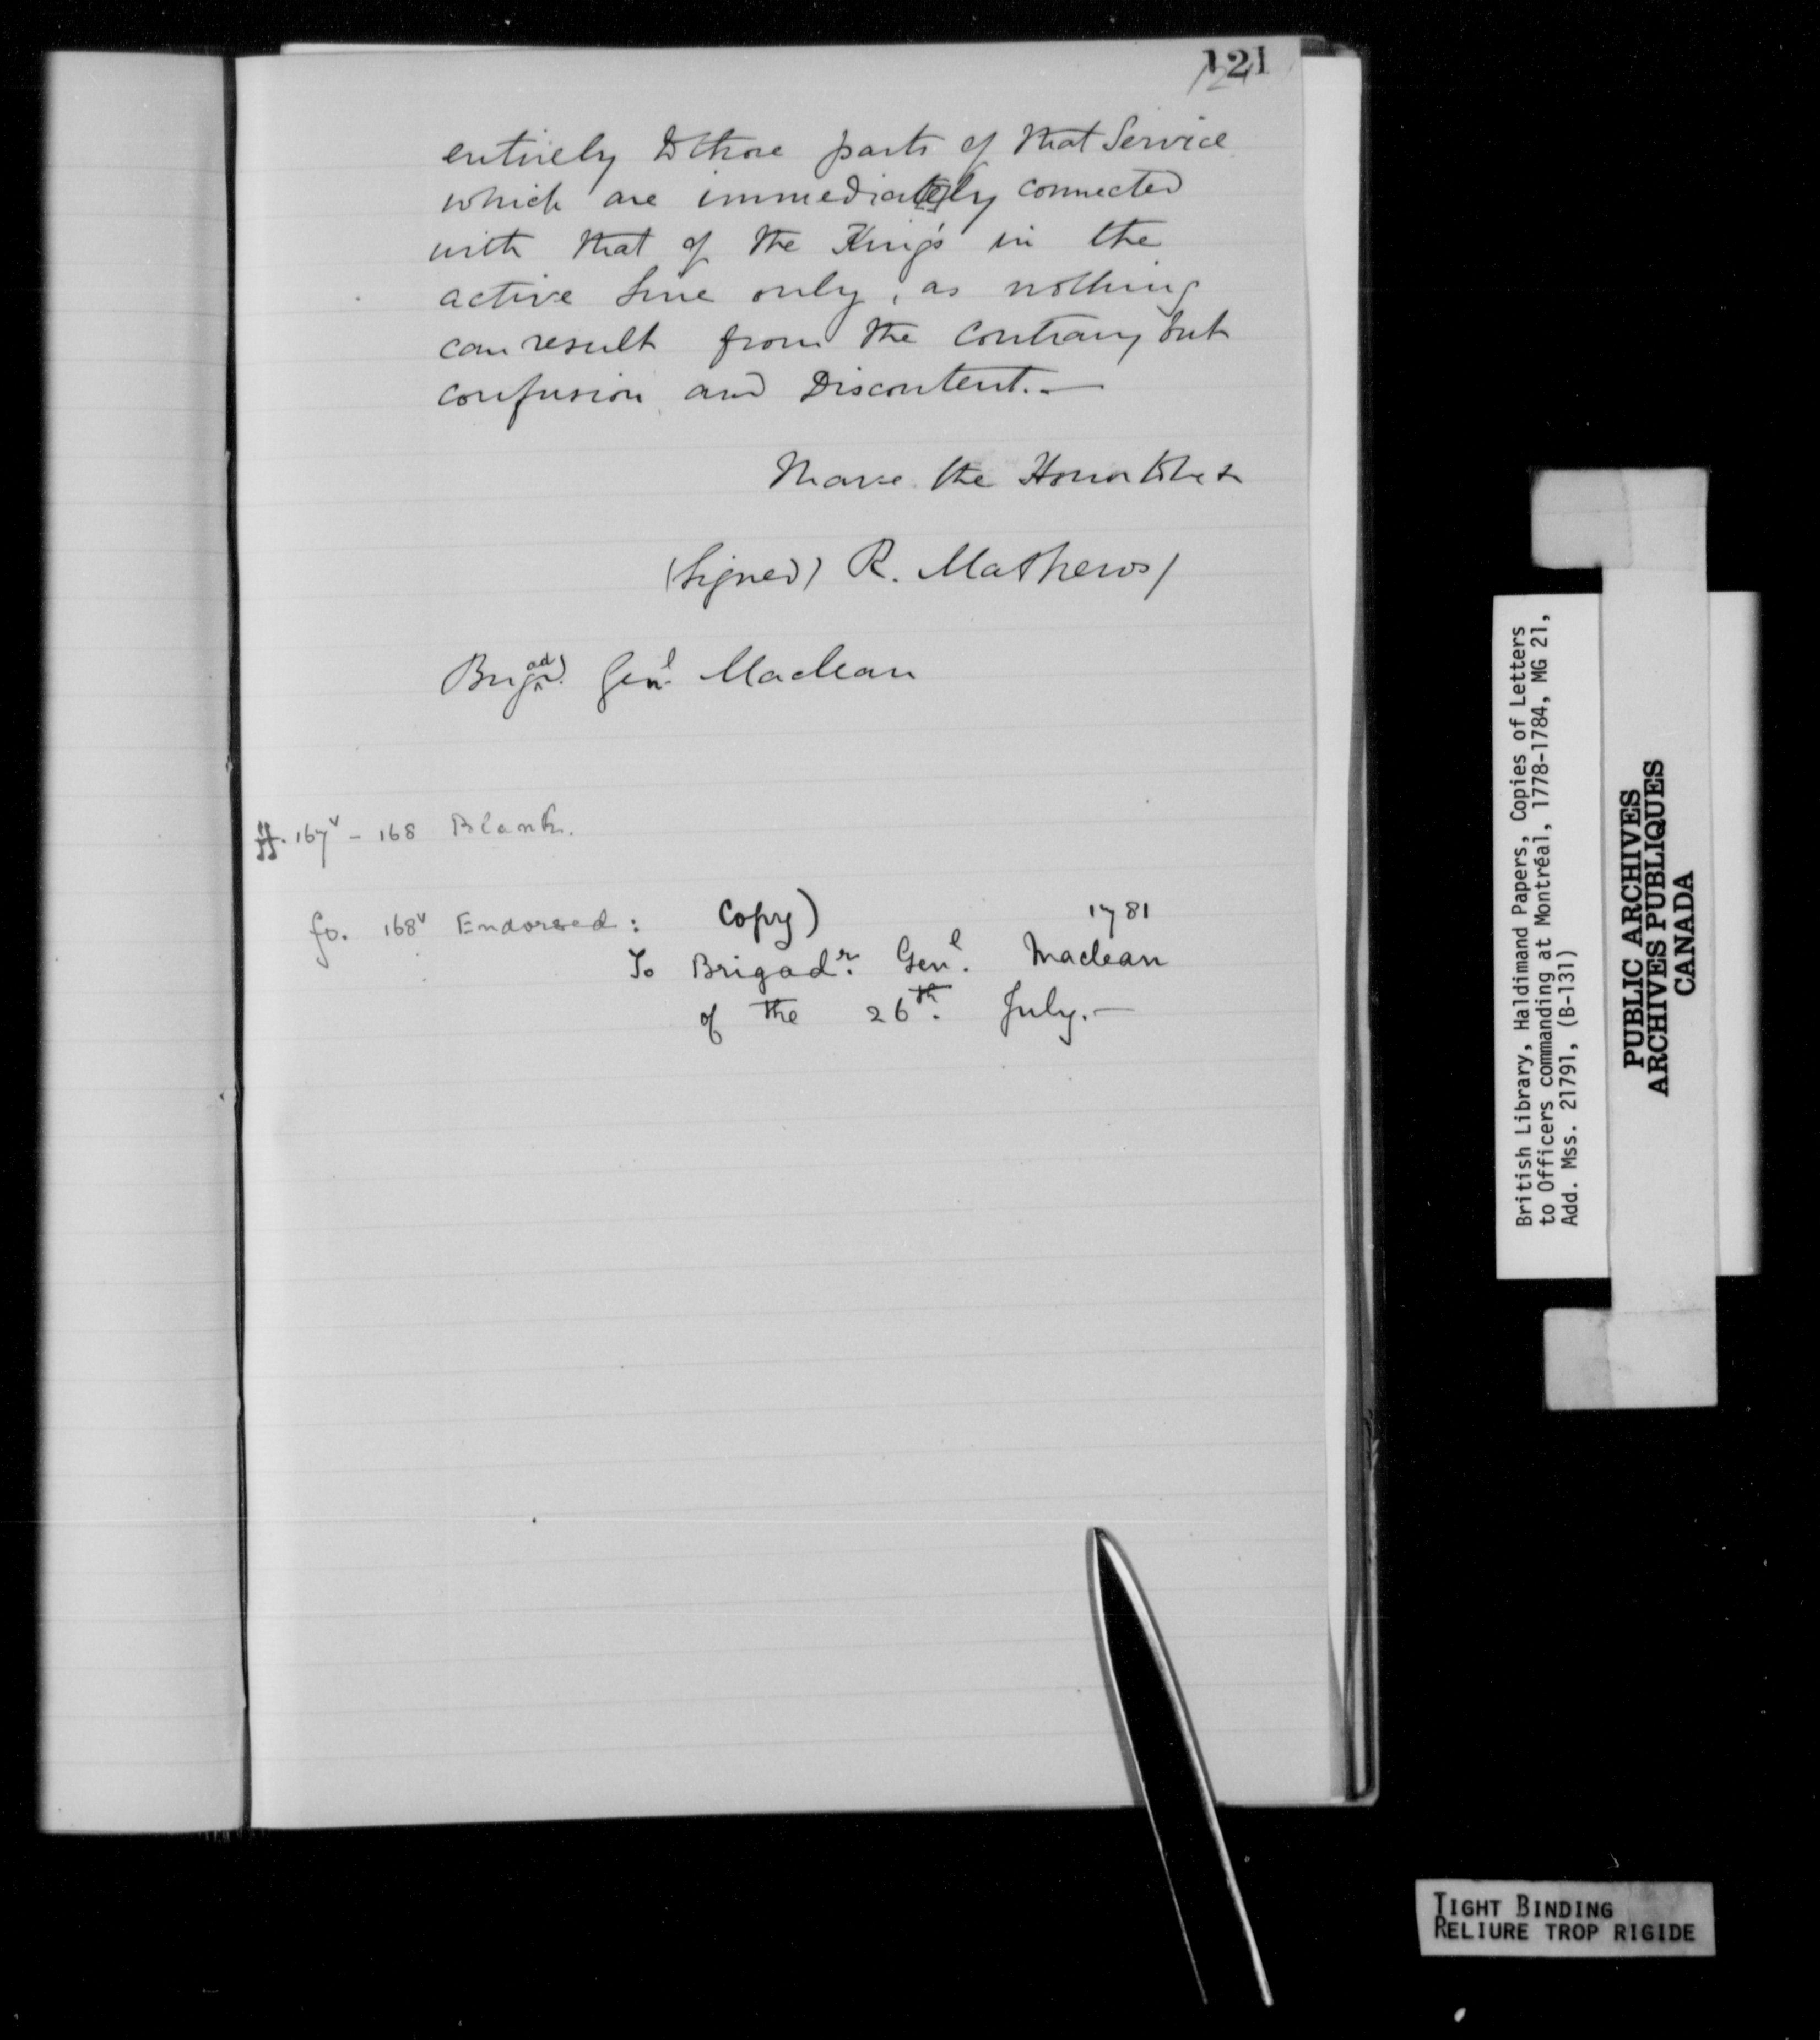 121
121
entirely to those parts of that Service
which are immediately connected
with that of the King's in the
active Line only, as nothing
can result from the contrary but
confusion and Discontent.—
I have the Honor to be &
(Signed) R. Mathews/
Brigadr. Genl. Maclean
ff. 167v - 168 Blank.
fo. 168v Endorsed: Copy) 1781
To Brigadr. Genl. Maclean
of the 26th. July.—
British Library, Haldimand Papers, Copies of Letters
to Officers commanding at Montréal, 1778-1784, MG 21,
Add. Mss. 21791, (B-131)
PUBLIC ARCHIVES
ARCHIVES PUBLIQUES
CANADA
TIGHT BINDING
RELIURE TROP RIGIDE